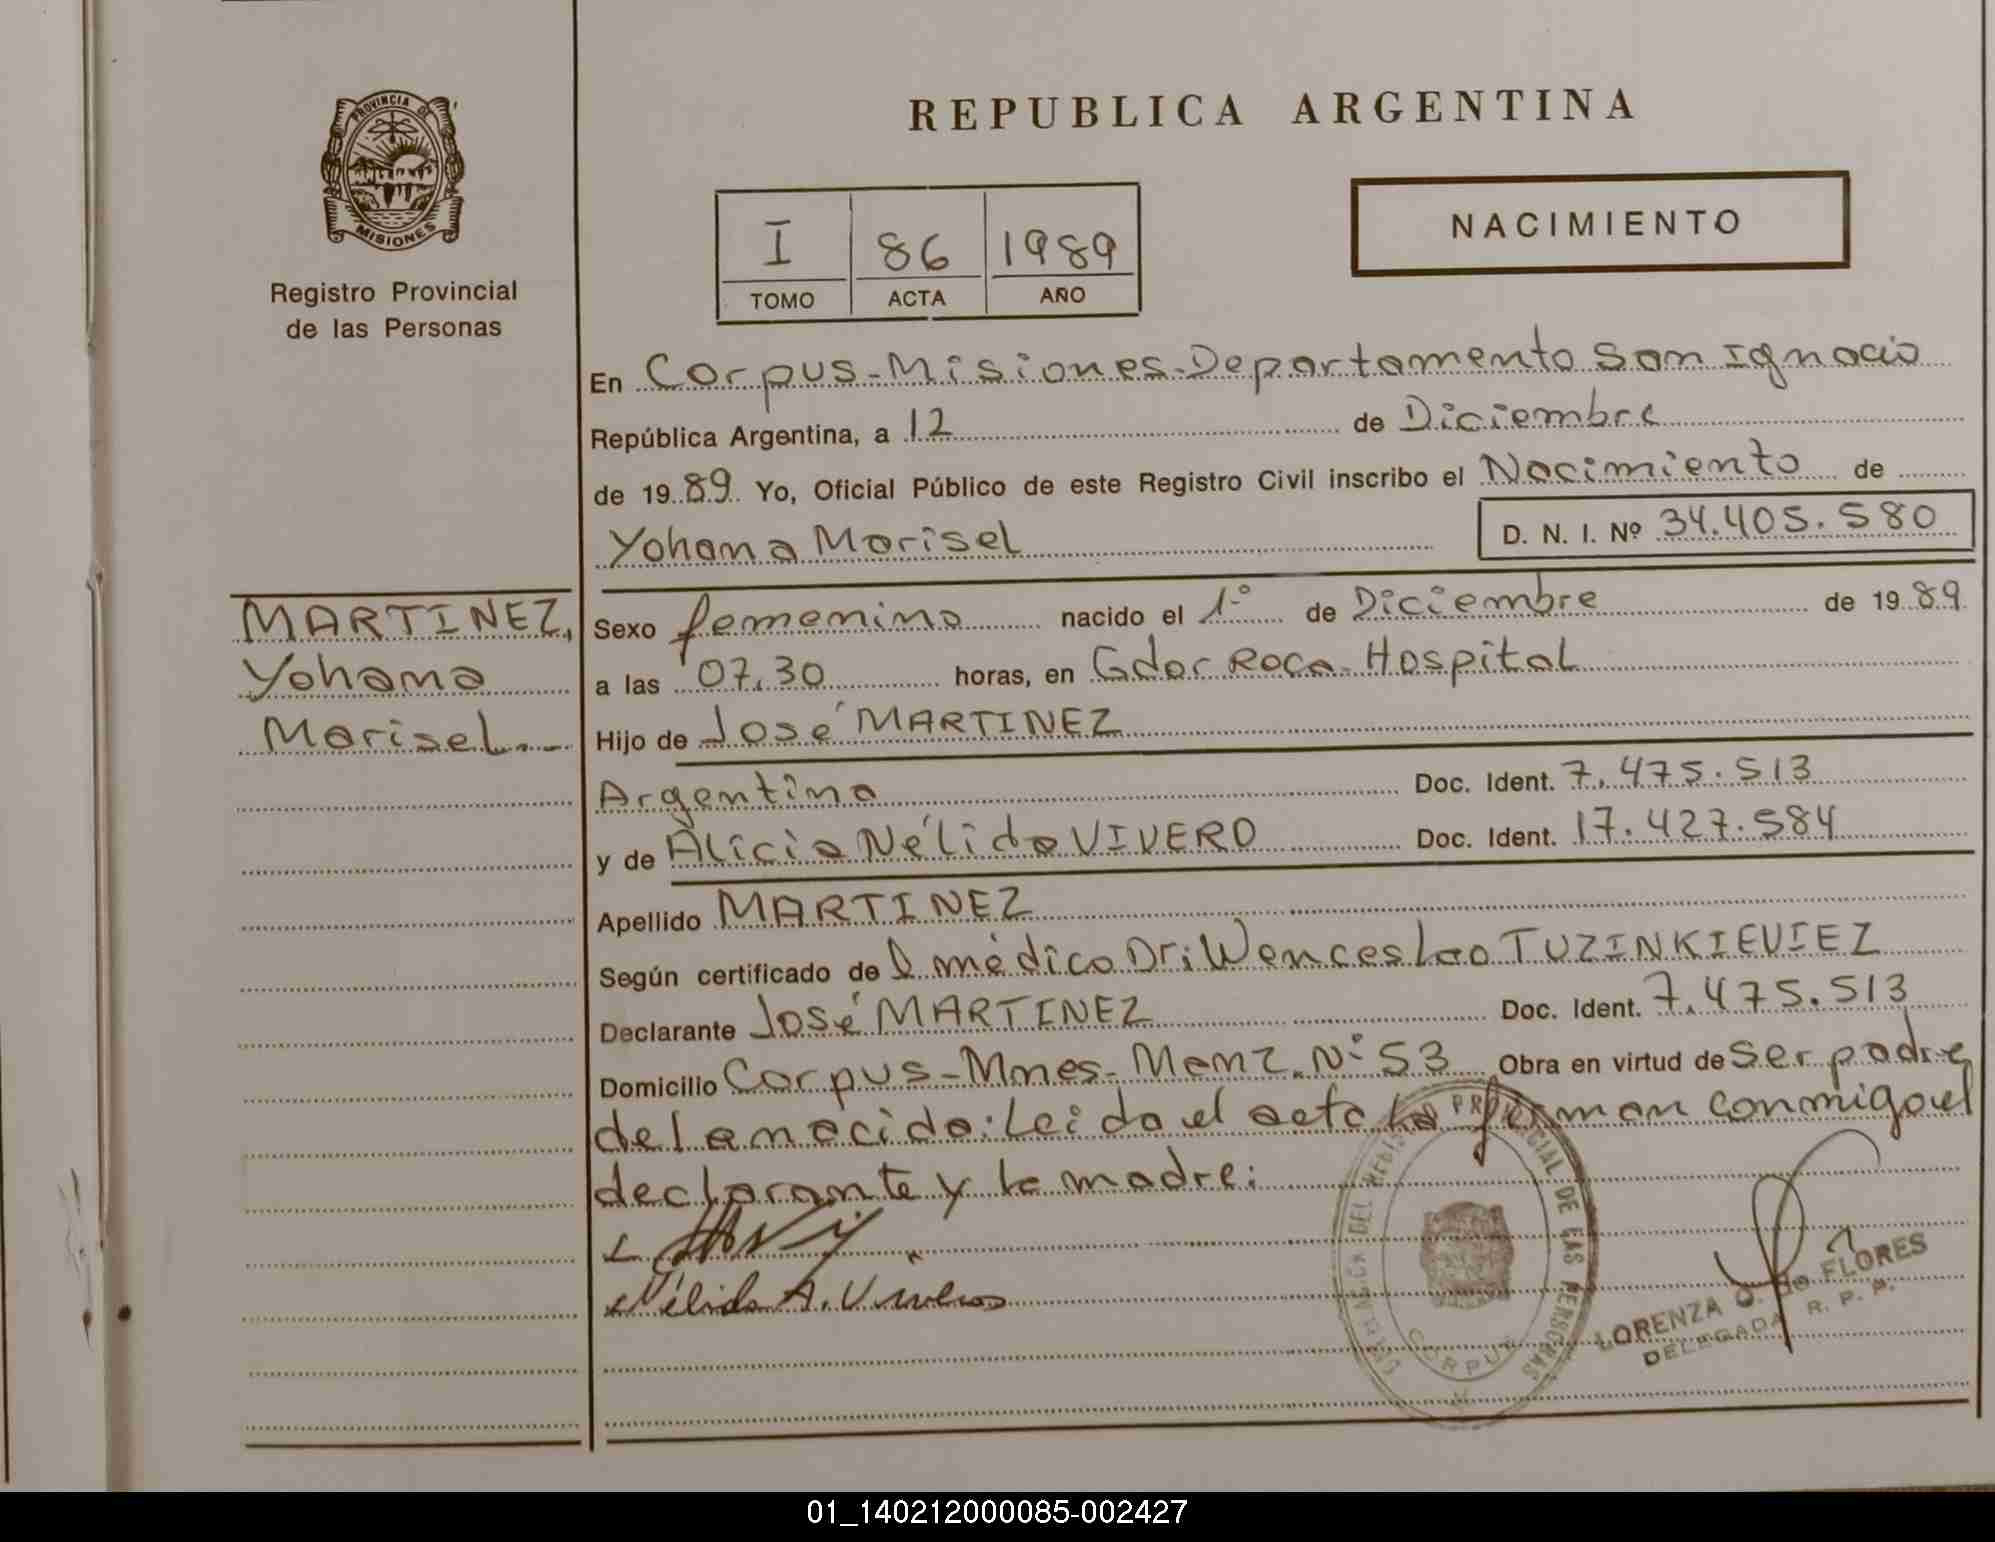 PROVINCIA DE
MISIONES
Registro Provincial
de las Personas
MARTINEZ,
Yohana
Marisel.--
REPUBLICA ARGENTINA
I 86 1989
TOMO ACTA AÑO
NACIMIENTO
En Corpus-Misiones-Departamento San Ignacio
República Argentina, a 12 de Diciembre
de 1989 Yo, Oficial Público de este Registro Civil inscribo el Nacimiento de
Yohana Marisel D. N. I. Nº 34.405.580
Sexo femenino nacido el 1º de Diciembre de 1989
a las 07,30 horas, en Gdor Roca-Hospital
Hijo de José MARTINEZ
Argentino Doc. Ident. 7.475.513
y de Alicia Nélida VIVERO Doc. Ident. 17.427.584
Apellido MARTINEZ
Según certificado de l médico Dr: Wenceslao TUZINKIEVIEZ
Declarante José MARTINEZ Doc. Ident. 7.475.513
Domicilio Corpus-Mnes-Manz. Nº 53 Obra en virtud de ser padre
del a nacida: Leida el acta la firman conmigo el
declarante y la madre:
Nélida A. Viveros
PROVINCIAL DE LAS PERSONAS
CORPUS
LORENZA O. de FLORES
DELEGADA R. P. P.
01_140212000085-002427